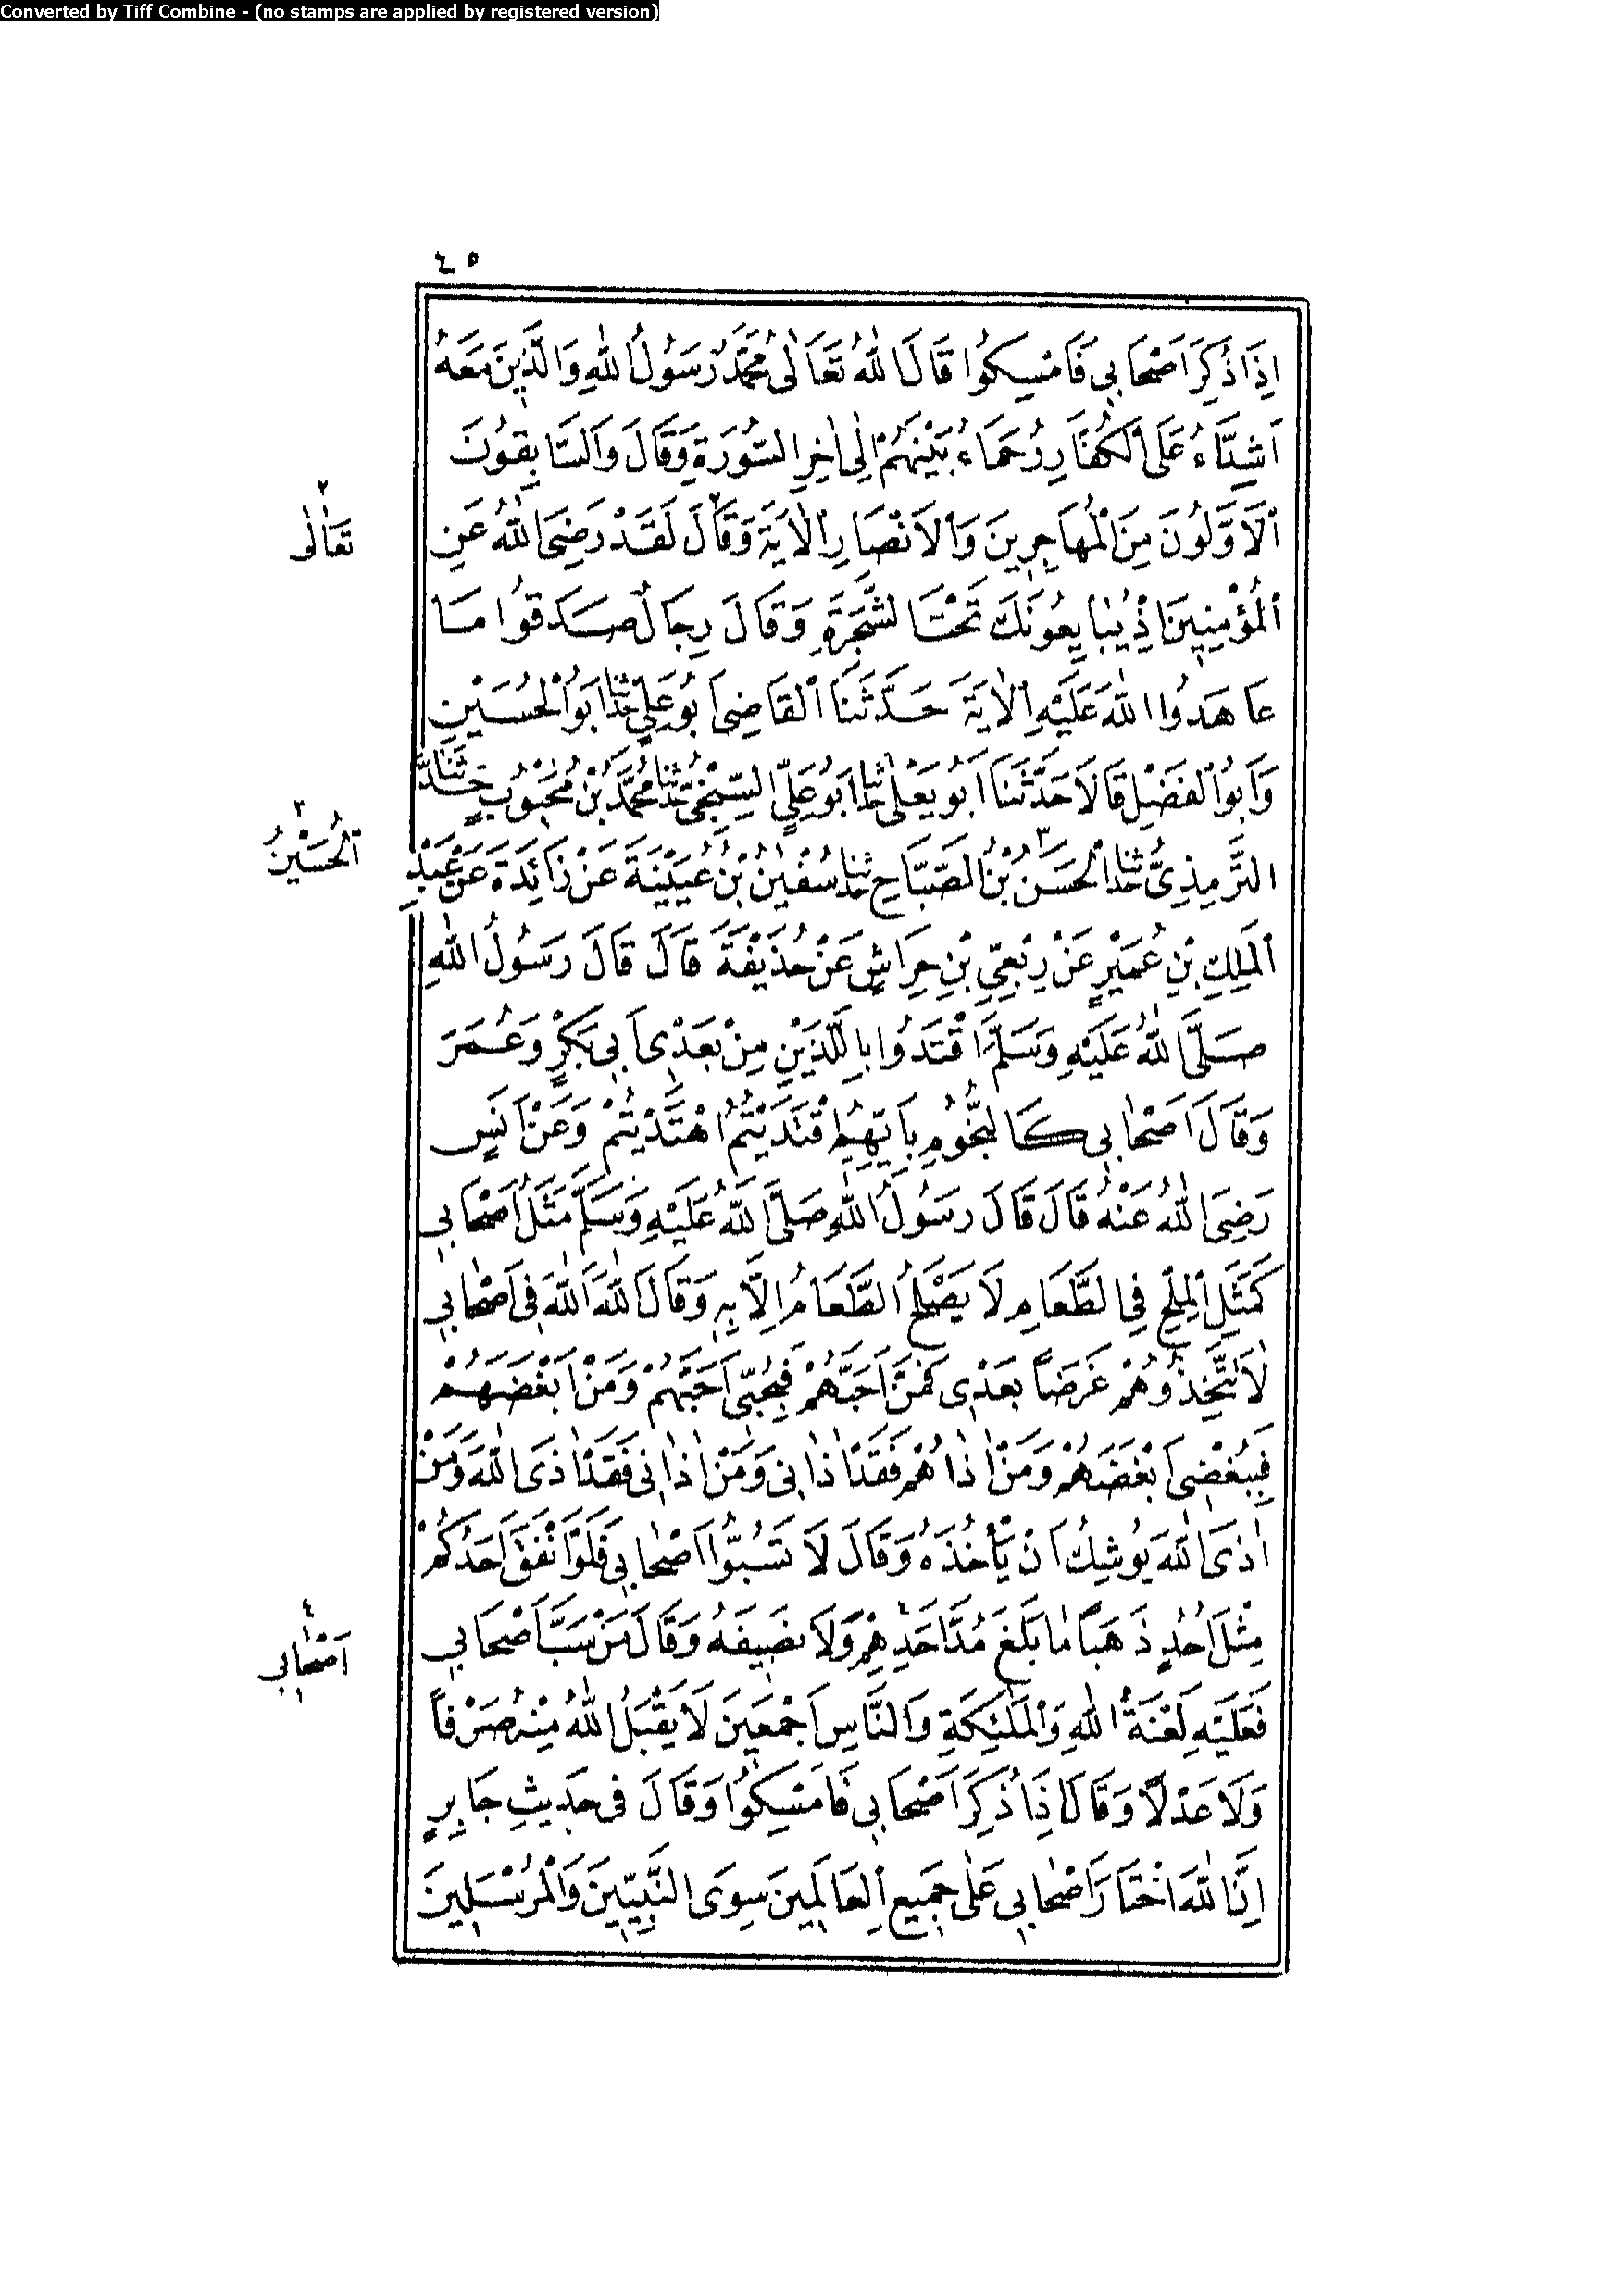 Converted by Tiff Combine - (no stamps are applied by registered version)
٤٥
اِذَا ذُكِرَ اَصْحَابِى فَاَمْسِكُوا قَالَ اللّٰهُ تَعَالٰى مُحَمَّدٌ رَسُولُ اللّٰهِ وَالَّذِينَ مَعَهُ
اَشِدَّاءُ عَلَى الْكُفَّارِ رُحَمَاءُ بَيْنَهُمْ اِلٰى اٰخِرِ السُّورَةِ وَقَالَ وَالسَّابِقُونَ
الْاَوَّلُونَ مِنَ الْمُهَاجِرِينَ وَالْاَنْصَارِ الْاٰيَةَ وَقَالَ٢ لَقَدْ رَضِىَ اللّٰهُ عَنِ
تَعَالٰى ٢
الْمُؤْمِنِينَ اِذْ يُبَايِعُونَكَ تَحْتَ الشَّجَرَةِ وَقَالَ رِجَالٌ صَدَقُوا مَا
عَاهَدُوا اللّٰهَ عَلَيْهِ الْاٰيَةَ حَدَّثَنَا الْقَاضِى اَبُو عَلِىٍّ حَدَّثَنَا اَبُو الْحُسَيْنِ
وَاَبُو الْفَضْلِ قَالَا حَدَّثَنَا اَبُو يَعْلٰى حَدَّثَنَا اَبُو عَلِىٍّ السِّنْجِىُّ حَدَّثَنَا مُحَمَّدُ بْنُ مَحْبُوبٍ حَدَّثَنَا
التِّرْمِذِىُّ حَدَّثَنَا الْحَسَنُ٣ بْنُ الصَّبَّاحِ حَدَّثَنَا سُفْيٰنُ بْنُ عُيَيْنَةَ عَنْ زَائِدَةَ عَنْ عَبْدِ
اَلْحُسَيْنُ ٣
الْمَلِكِ بْنِ عُمَيْرٍ عَنْ رِبْعِىِّ بْنِ حِرَاشٍ عَنْ حُذَيْفَةَ قَالَ قَالَ رَسُولُ اللّٰهِ
صَلَّى اللّٰهُ عَلَيْهِ وَسَلَّمَ اقْتَدُوا بِاللَّذَيْنِ مِنْ بَعْدِى اَبِى بَكْرٍ وَعُمَرَ
وَقَالَ اَصْحَابِى كَالنُّجُومِ بِاَيِّهِمُ اقْتَدَيْتُمُ اهْتَدَيْتُمْ وَعَنْ اَنَسٍ
رَضِىَ اللّٰهُ عَنْهُ قَالَ قَالَ رَسُولُ اللّٰهِ صَلَّى اللّٰهُ عَلَيْهِ وَسَلَّمَ مَثَلُ اَصْحَابِى
كَمَثَلِ الْمِلْحِ فِى الطَّعَامِ لَا يَصْلُحُ الطَّعَامُ اِلَّا بِهِ وَقَالَ اللّٰهَ اللّٰهَ فِى اَصْحَابِى
لَا تَتَّخِذُوهُمْ غَرَضًا بَعْدِى فَمَنْ اَحَبَّهُمْ فَبِحُبِّى اَحَبَّهُمْ وَمَنْ اَبْغَضَهُمْ
فَبِبُغْضِى اَبْغَضَهُمْ وَمَنْ اٰذَاهُمْ فَقَدْ اٰذَانِى وَمَنْ اٰذَانِى فَقَدْ اٰذَى اللّٰهَ وَمَنْ
اٰذَى اللّٰهَ يُوشِكُ اَنْ يَأْخُذَهُ وَقَالَ لَا تَسُبُّوا اَصْحَابِى فَلَوْ اَنْفَقَ اَحَدُكُمْ
مِثْلَ اُحُدٍ ذَهَبًا مَا بَلَغَ مُدَّ اَحَدِهِمْ٤ وَلَا نَصِيفَهُ وَقَالَ مَنْ سَبَّ اَصْحَابِى
اَصْحَابِى ٤
فَعَلَيْهِ لَعْنَةُ اللّٰهِ وَالْمَلٰئِكَةِ وَالنَّاسِ اَجْمَعِينَ لَا يَقْبَلُ اللّٰهُ مِنْهُ صَرْفًا
وَلَا عَدْلًا وَقَالَ اِذَا ذُكِرَ اَصْحَابِى فَاَمْسِكُوا وَقَالَ فِى حَدِيثِ جَابِرٍ
اِنَّ اللّٰهَ اخْتَارَ اَصْحَابِى عَلٰى جَمِيعِ الْعَالَمِينَ سِوَى النَّبِيِّينَ وَالْمُرْسَلِينَ